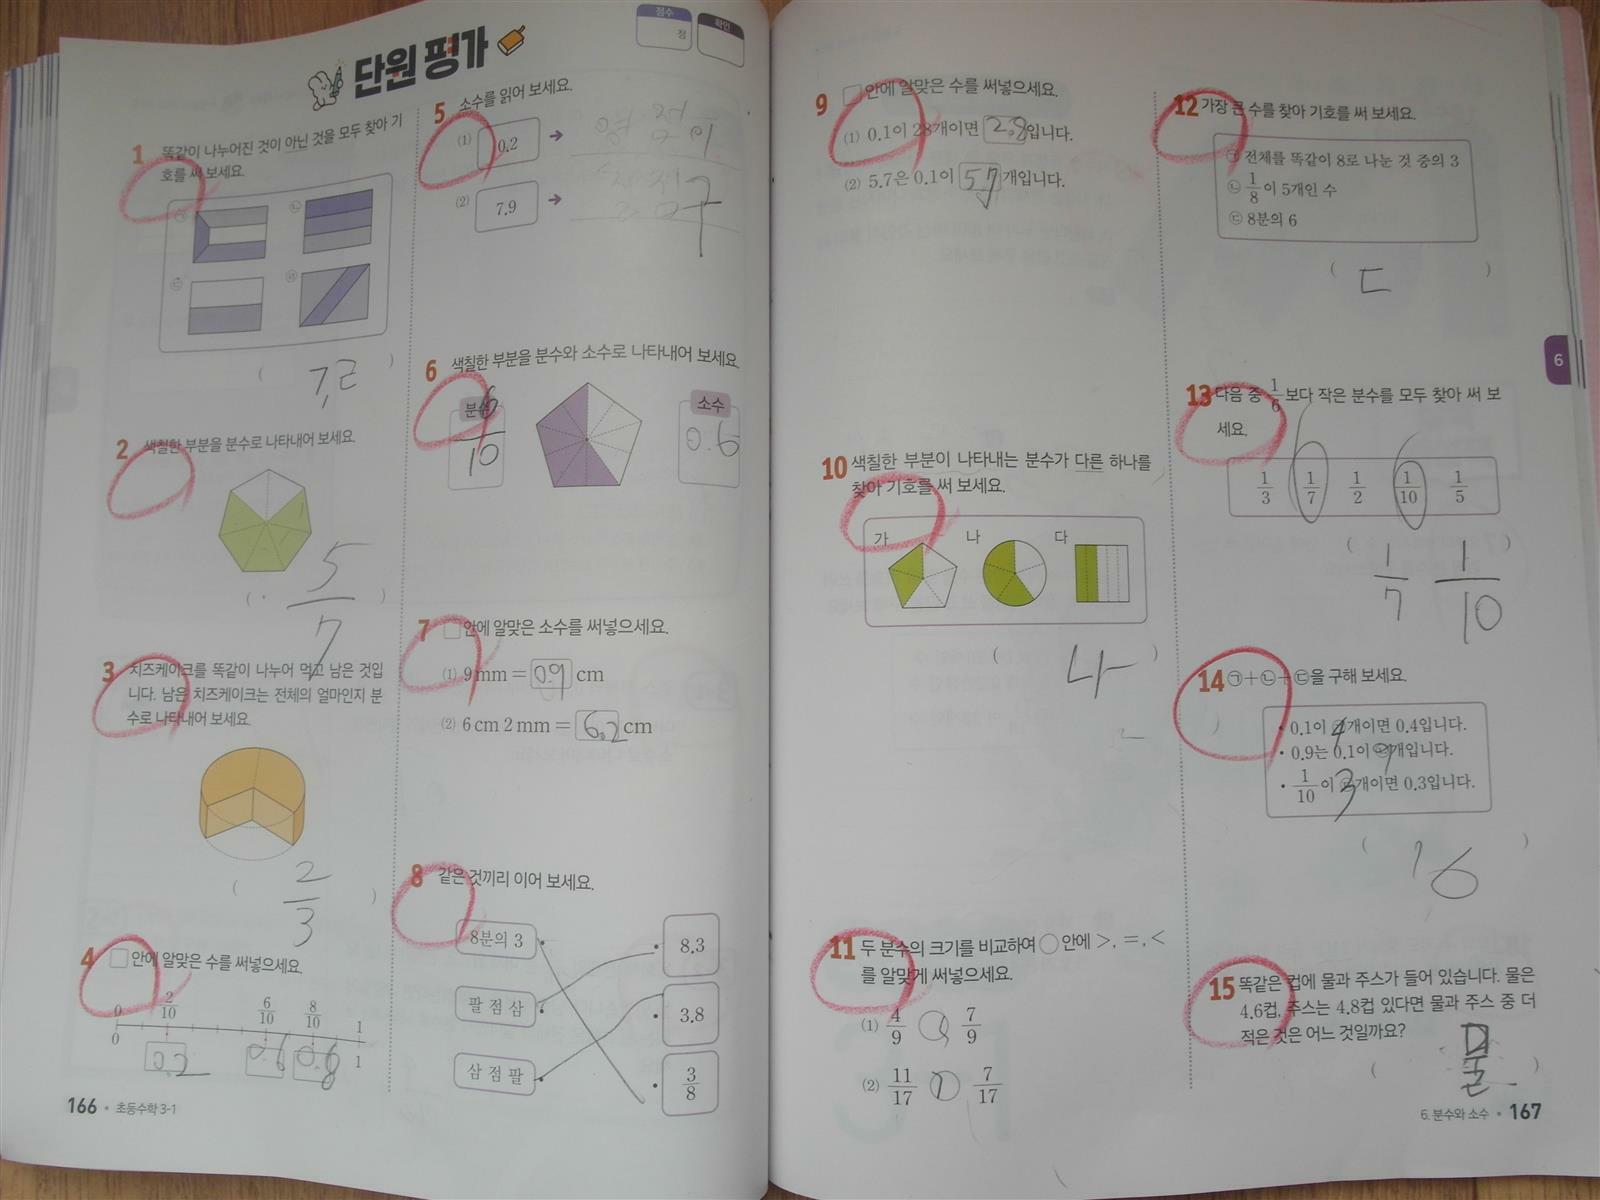 단원 평가
점수
점
확인
1 똑같이 나누어진 것이 아닌 것을 모두 찾아 기
호를 써 보세요.
㉠ ㉡
㉢ ㉣
( ㄱ,ㄹ )
2 색칠한 부분을 분수로 나타내어 보세요.
( 5/7 )
3 치즈케이크를 똑같이 나누어 먹고 남은 것입
니다. 남은 치즈케이크는 전체의 얼마인지 분
수로 나타내어 보세요.
( 2/3 )
4 □ 안에 알맞은 수를 써넣으세요.
0 2/10 6/10 8/10 1
0 0.2 0.6 0.8 1
166 • 초등수학 3-1
5 소수를 읽어 보세요.
(1) 0.2 → 영 점 이
(2) 7.9 →
6 색칠한 부분을 분수와 소수로 나타내어 보세요.
분수 소수
6/10 0.6
7 □ 안에 알맞은 소수를 써넣으세요.
(1) 9 mm = 0.9 cm
(2) 6 cm 2 mm = 6.2 cm
8 같은 것끼리 이어 보세요.
8분의 3 • • 8.3
팔 점 삼 • • 3.8
삼 점 팔 • • 3/8
9 □ 안에 알맞은 수를 써넣으세요.
(1) 0.1이 28개이면 2.8입니다.
(2) 5.7은 0.1이 57개입니다.
10 색칠한 부분이 나타내는 분수가 다른 하나를
찾아 기호를 써 보세요.
가 나 다
( 나 )
11 두 분수의 크기를 비교하여 ○ 안에 >, =, <
를 알맞게 써넣으세요.
(1) 4/9 < 7/9
(2) 11/17 > 7/17
12 가장 큰 수를 찾아 기호를 써 보세요.
㉠ 전체를 똑같이 8로 나눈 것 중의 3
㉡ 1/8이 5개인 수
㉢ 8분의 6
( ㄷ )
13 다음 중 1/6보다 작은 분수를 모두 찾아 써 보
세요.
1/3 1/7 1/2 1/10 1/5
( 1/7 1/10 )
14 ㉠+㉡+㉢을 구해 보세요.
• 0.1이 4개이면 0.4입니다.
• 0.9는 0.1이 ㉡개입니다.
• 1/10이 3개이면 0.3입니다.
( 16 )
15 똑같은 컵에 물과 주스가 들어 있습니다. 물은
4.6컵, 주스는 4.8컵 있다면 물과 주스 중 더
적은 것은 어느 것일까요?
( 물 )
6
6. 분수와 소수 • 167